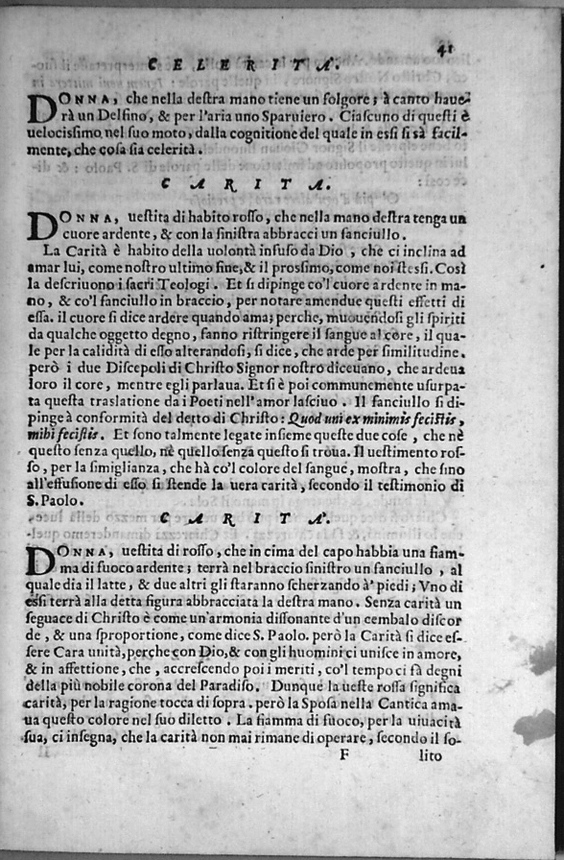 41
CELERITÀ.
DONNA, che nella destra mano tiene un folgore; à canto haue-
rà un Delfino, & per l'aria uno Sparuiero. Ciascuno di questi è
uelocissimo nel suo moto, dalla cognitione del quale in essi si sà facil-
mente, che cosa sia celerità.
CARITA.
DONNA, uestita di habito rosso, che nella mano destra tenga un
cuore ardente, & con la sinistra abbracci un fanciullo.
La Carità è habito della uolontà infuso da Dio, che ci inclina ad
amar lui, come nostro ultimo fine, & il prossimo, come noi stessi. Così
la descriuono i sacri Teologi. Et si dipinge co'l cuore ardente in ma-
no, & co'l fanciullo in braccio, per notare amendue questi effetti di
essa. il cuore si dice ardere quando ama; perche, muouendosi gli spiriti
da qualche oggetto degno, fanno ristringere il sangue al core, il qua-
le per la calidità di esso alterandosi, si dice, che arde per similitudine.
però i due Discepoli di Christo Signor nostro diceuano, che ardeua
loro il core, mentre egli parlaua. Et si è poi communemente usurpa-
ta questa traslatione da i Poeti nell'amor lasciuo. Il fanciullo si di-
pinge à conformità del detto di Christo: Quod uni ex minimis fecistis,
mihi fecistis. Et sono talmente legate insieme queste due cose, che nè
questo senza quello, nè quello senza questo si troua. Il uestimento ros-
so, per la simiglianza, che hà co'l colore del sangue, mostra, che fino
all'effusione di esso si stende la uera carità, secondo il testimonio di
S. Paolo.
CARITÀ.
DONNA, uestita di rosso, che in cima del capo habbia una fiam-
ma di fuoco ardente; terrà nel braccio sinistro un fanciullo, al
quale dia il latte, & due altri gli staranno scherzando à' piedi; Vno di
essi terrà alla detta figura abbracciata la destra mano. Senza carità un
seguace di Christo è come un'armonia dissonante d'un cembalo discor
de, & una sproportione, come dice S. Paolo. però la Carità si dice es-
sere Cara unità, perche con Dio, & con gli huomini ci unisce in amore,
& in affettione, che, accrescendo poi i meriti, co'l tempo ci fà degni
della più nobile corona del Paradiso. Dunque la ueste rossa significa
carità, per la ragione tocca di sopra. però la Sposa nella Cantica ama-
ua questo colore nel suo diletto. La fiamma di fuoco, per la uiuacità
sua, ci insegna, che la carità non mai rimane di operare, secondo il so-
F lito